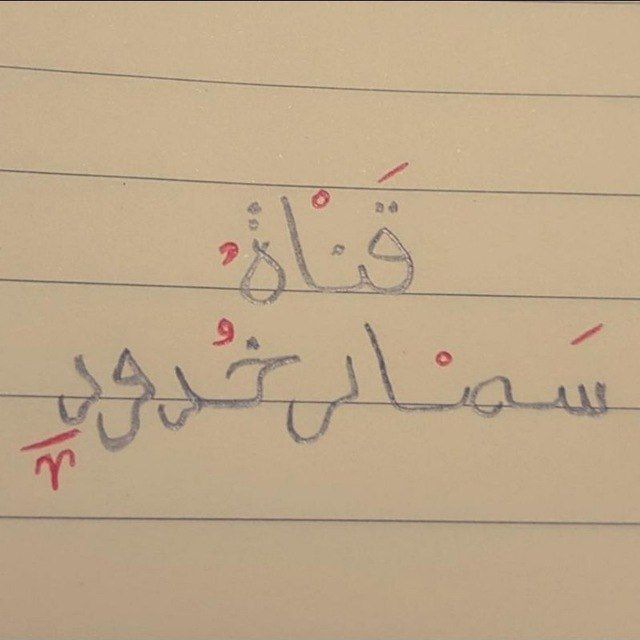 قَنْاةُ
سَمنْار خُدودِ